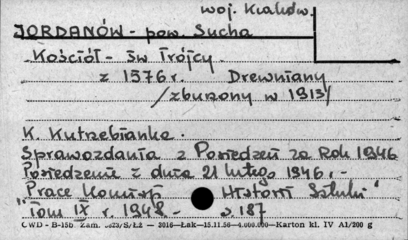 woj. Kraków.
JORDANÓW - pow. Sucha
Kościół - św Trójcy
z 1576 r. Drewniany
/zburzony w 1913/
K. Kutrzebianka.
Sprawozdania z Posiedzeń za Rok 1946
Posiedzenie z dnia 21 lutego 1946. -
Prace Komisji Historii Sztuki"
"Tom IX r. 1948 - s. 187
CWD - B-15b Zam. S/Łż — 3016—Łak—15.11.56—4.000.000—Karton kl. IV A1/200 g